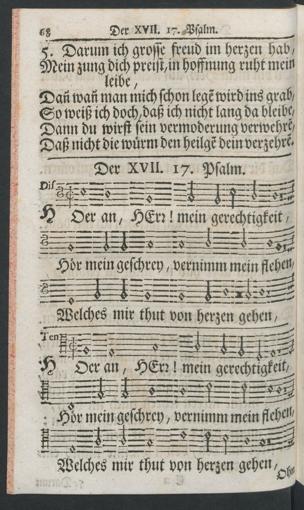 68 Der XVII. 17. Psalm.
5. Darum ich grosse freud im herzen hab,
Mein zung dich preist, in hoffnung ruht mein
leibe,
Dañ wañ man mich schon legẽ wird ins grab,
So weiß ich doch, daß ich nicht lang da bleibe,
Dann du wirst sein vermoderung verwehrẽ,
Daß nicht die würm den heilgẽ dein verzehrẽ.
Der XVII. 17. Psalm.
Dis
H Oer an, HErꝛ! mein gerechtigkeit,
Hör mein geschrey, vernimm mein flehen,
Welches mir thut von herzen gehen,
Ten
H Oer an, HErꝛ! mein gerechtigkeit,
Hör mein geschrey, vernimm mein flehen,
Welches mir thut von herzen gehen,